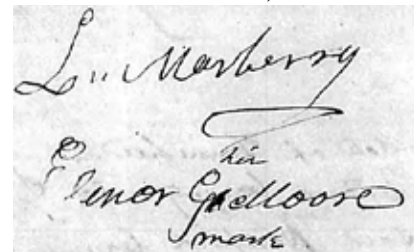 L,, Marberry
her
Elenor G x Moore
mark